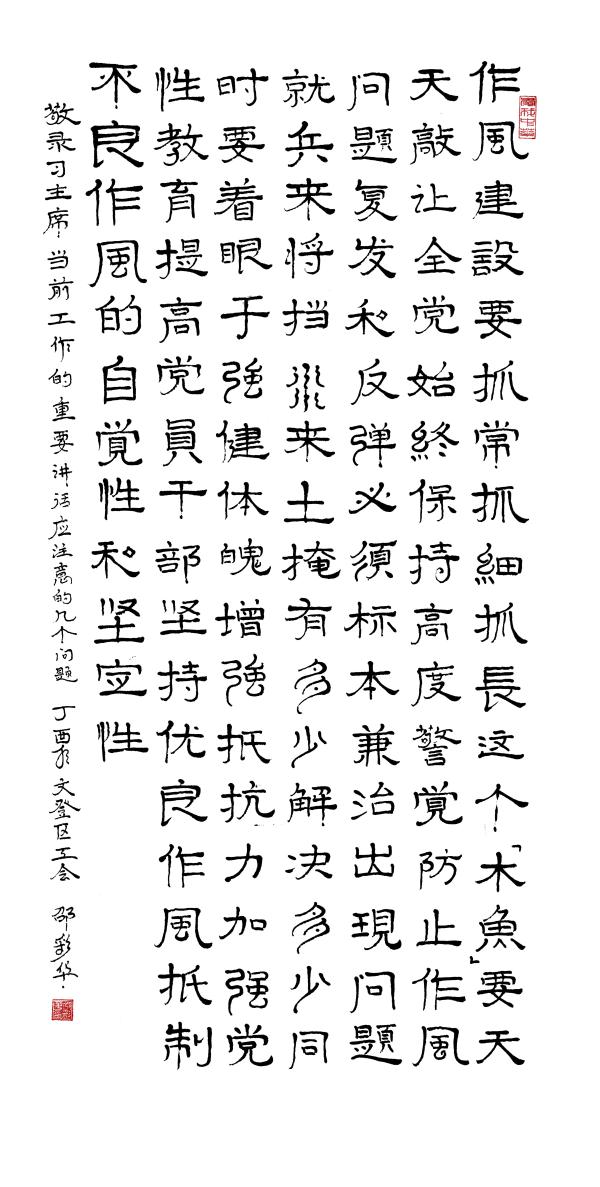 作風建設要抓常抓細抓長这个「木魚」要天
天敲让全党始終保持高度警觉防止作風
问题复发和反弹必须标本兼治出現问题
就兵来将挡巛来土掩有多少解决多少同
时要着眼于强健体魄增强抵抗力加强党
性教育提高党員干部坚持优良作風抵制
不良作風的自觉性和坚定性
敬录习主席当前工作的重要讲话应注意的几个问题 丁酉 文登区工会 邵彩华